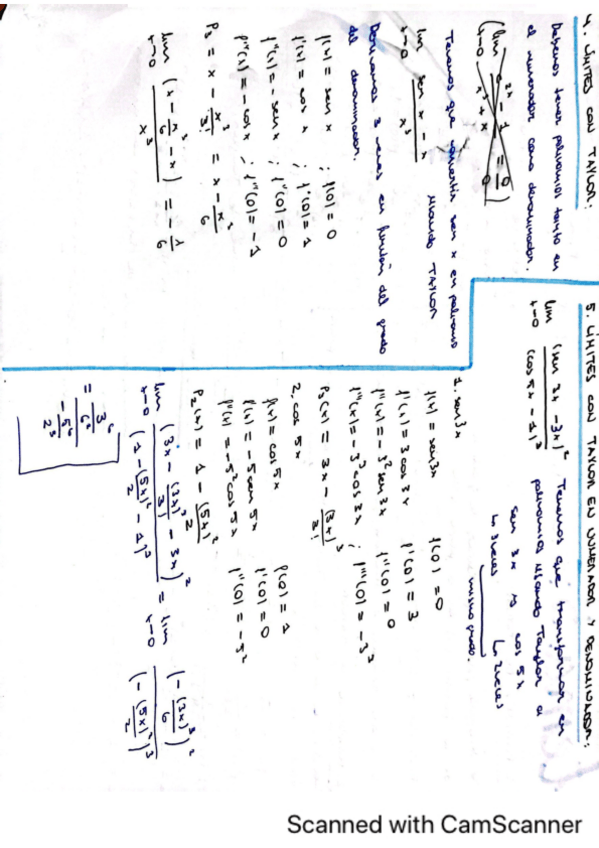 4. LÍMITES CON TAYLOR:
Debemos tener polinomios tanto en
el numerador como denominador.
Tenemos que convertir sen x en polinomio
usando TAYLOR
lim x→0 (sen x - x)/x³
Derivamos 3 veces en función del grado
del denominador.
f(x) = sen x ; f(0) = 0
f'(x) = cos x ; f'(0) = 1
f''(x) = -sen x ; f''(0) = 0
f'''(x) = -cos x ; f'''(0) = -1
P₃ = x - x³/3! = x - x³/6
lim x→0 (x - x³/6 - x)/x³ = -1/6
5. LÍMITES CON TAYLOR EN NUMERADOR Y DENOMINADOR:
lim x→0 (sen 3x - 3x)²/(cos 5x - 1)³
Tenemos que transformar en
polinomios usando Taylor a
sen 3x y cos 5x
↳ 3 veces ↳ 2 veces
mismo grado.
1. sen 3x
f(x) = sen 3x f(0) = 0
f'(x) = 3 cos 3x f'(0) = 3
f''(x) = -3² sen 3x f''(0) = 0
f'''(x) = -3³ cos 3x ; f'''(0) = -3³
P₃(x) = 3x - (3x)³/3!
2. cos 5x
f(x) = cos 5x f(0) = 1
f'(x) = -5 sen 5x f'(0) = 0
f''(x) = -5² cos 5x f''(0) = -5²
P₂(x) = 1 - (5x)²/2
lim x→0 (3x - (3x)³/3! - 3x)²/(1 - (5x)²/2 - 1)³ = lim x→0 (-(3x)³/6)²/(-(5x)²/2)³
Scanned with CamScanner